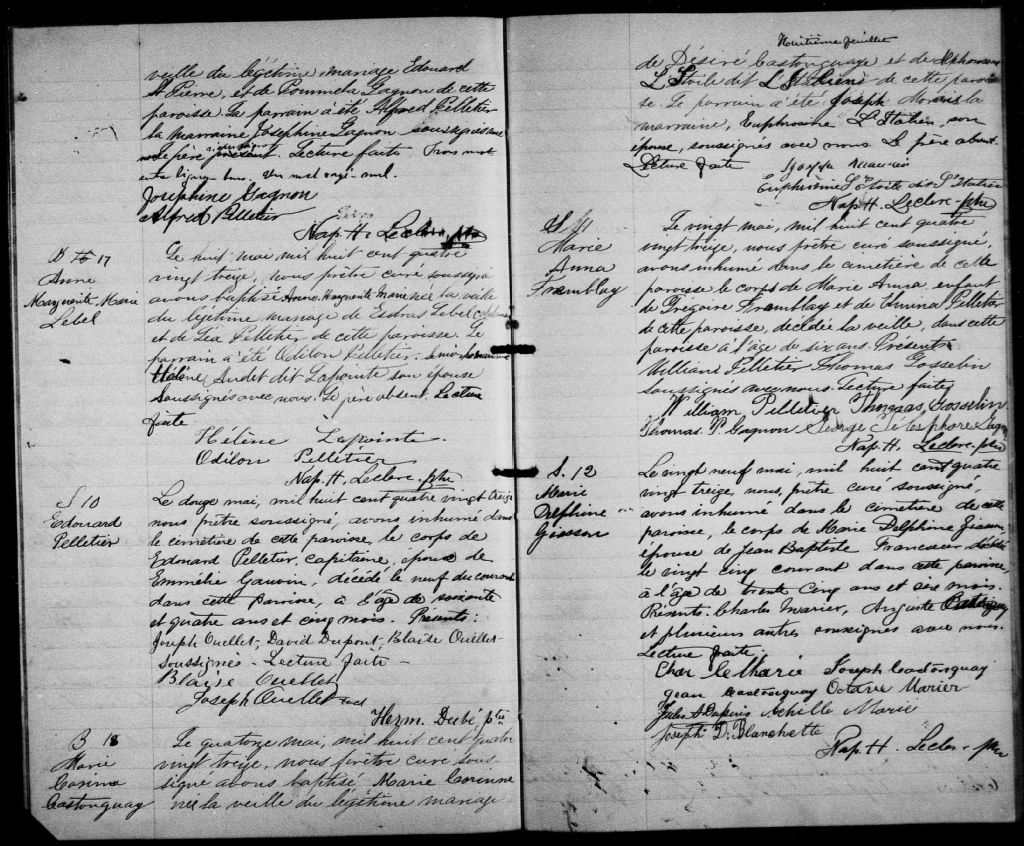 veille du légitime mariage Edouard
St Pierre, et de Gagnon de cette
paroisse. Le parrain a été Alfred Pelletier
la marraine Joséphine Gagnon soussignés avec
le père présent. Lecture faite. Trois mots
Un mot rayé nul.
Joséphine Gagnon
Alfred Pelletier
Nap. H. Leclerc, ptre
B 17
Anne
Marguerite Marie
Lebel
Le huit mai mil huit cent quatre
vingt treize, nous prêtre curé soussigné
avons baptisé Anne Marguerite Marie née la veille
du légitime mariage de Esdras Lebel
et de Léa Pelletier de cette paroisse. Le
parrain a été Odilon Pelletier, la marraine
Hélène Audet dit Lapointe son épouse
soussignés avec nous. Le père absent. Lecture
faite
Hélène Lapointe.
Odilon Pelletier
Nap. H. Leclerc, ptre
S 10
Edouard
Pelletier
Le douze mai, mil huit cent quatre vingt treize
nous prêtre soussigné, avons inhumé dans
le cimetière de cette paroisse, le corps de
Edouard Pelletier, capitaine, époux de
Emmélie Gauvin, décédé le neuf du courant
dans cette paroisse, à l'âge de soixante
et quatre ans et cinq mois. Présents:
Joseph Ouellet, David Dupont, Blaise Ouellet
soussignés - Lecture faite -
Blaise Ouellet
Joseph Ouellet
Herm. Dubé, ptre
B 18
Marie
Corinne
Castonguay
Le quatorze mai, mil huit cent quatre
vingt treize, nous prêtre curé sous-
signé avons baptisé Marie Corinne
née la veille du légitime mariage
Huitième feuillet
de Désiré Castonguay et de
L'Etoile dit L'Italien de cette parois-
se. Le parrain a été Joseph Morais la
marraine, Euphrosine L'Italien son
épouse, soussignés avec nous. Le père absent.
Lecture faite
Euphrosine L'Etoile dit L'Italien
Nap. H. Leclerc, ptre
S 11
Marie
Anna
Tremblay
Le vingt mai, mil huit cent quatre
vingt treize, nous prêtre curé soussigné,
avons inhumé dans le cimetière de cette
paroisse le corps de Marie Anna enfant
de Grégoire Tremblay et de Pelletier
de cette paroisse, décédée la veille, dans cette
paroisse à l'âge de six ans. Présents
William Pelletier Thomas Gosselin
soussignés avec nous. Lecture faite
William Pelletier Thomas Gosselin
Thomas P. Gagnon George Télesphore Gagnon
Nap. H. Leclerc, ptre
S. 12
Marie
Delphine
Giasson
Le vingt neuf mai, mil huit cent quatre
vingt treize, nous, prêtre curé soussigné
avons inhumé dans le cimetière de cette
paroisse, le corps de Marie Delphine Giasson
épouse de Jean Baptiste Francoeur décédée
le vingt cinq courant dans cette paroisse,
à l'âge de trente cinq ans et six mois.
Présents. Charles Marier, Auguste Castonguay
et plusieurs autres soussignés avec nous.
Lecture faite.
Joseph Castonguay
Jean Castonguay Octave Marier
Jules Achille Marié
Joseph D. Blanchette
Nap. H. Leclerc, ptre